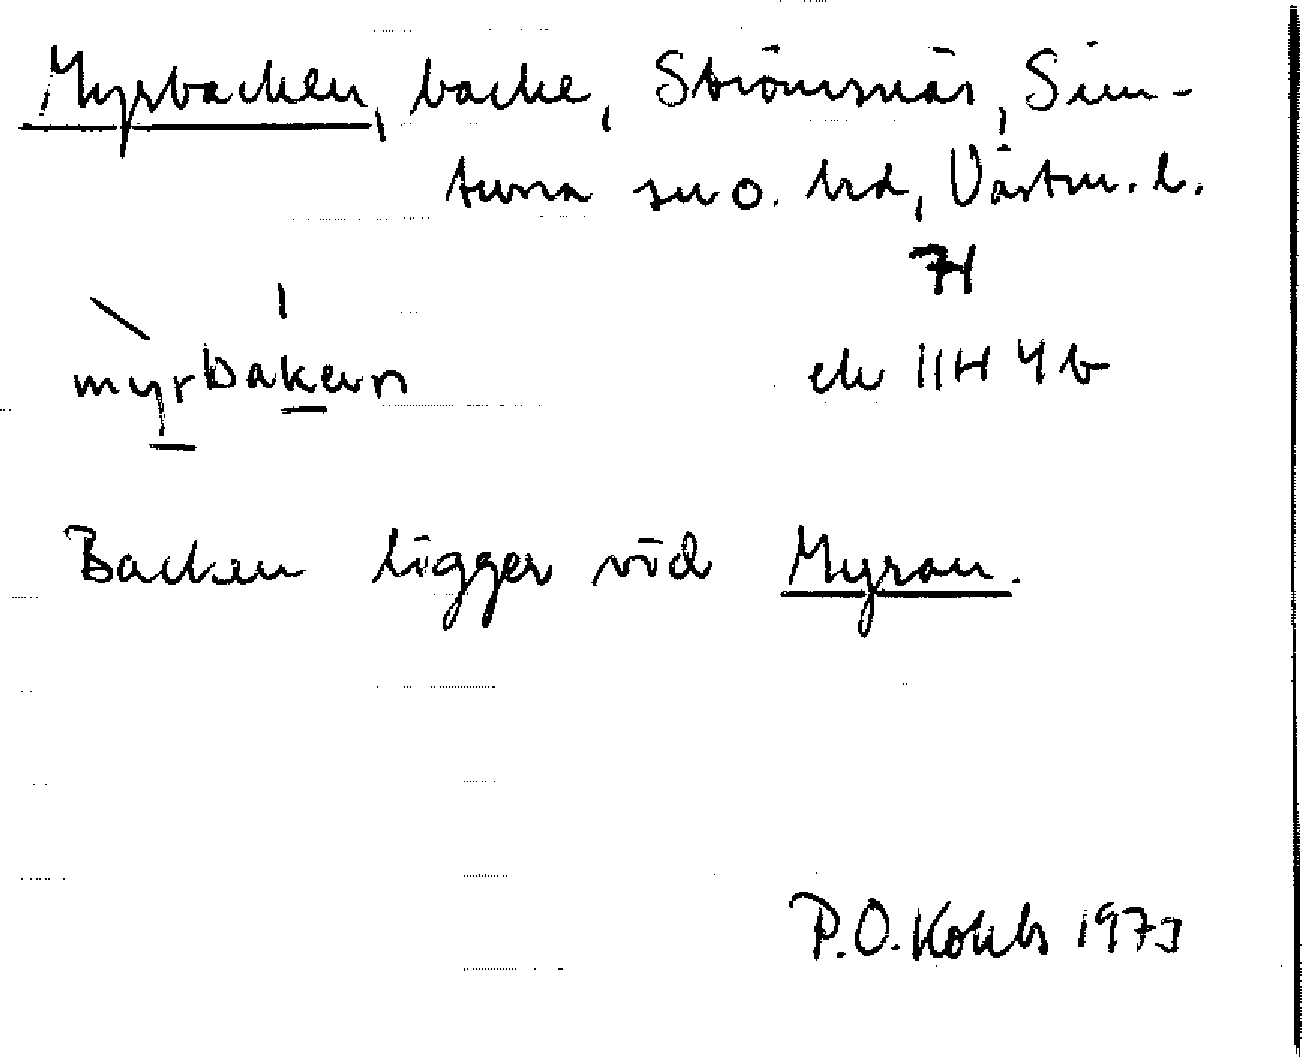 Myrbacken, backe, Strömsnäs, Sim-
tuna sn o. hd, Västm. l.
71
myrbakenn
ek 11H 4b
Backen ligger vid Myran.
P.O. Kohls 1973